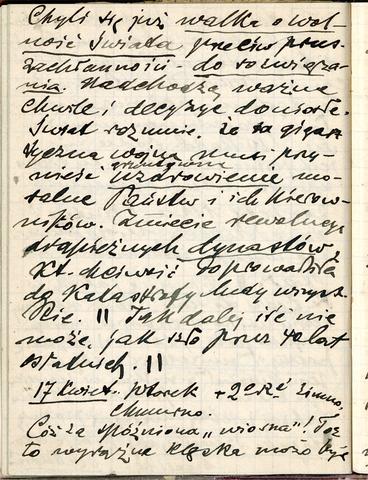 Chyli się już walka o wol-
ność świata przeciw prus.
zachłanności - do rozwiąza-
nia. Nadchodzą ważne
chwile i decyzje doniosłe.
Świat rozumie, że ta gigan-
tyczna wojna musi przy-
nieść gruntowne uzdrowienie mo-
ralne Państw i ich kierow-
ników. Zmiecie
drapieżnych dynastów,
kt. chciwość doprowadziła
do katastrofy ludy wszyst-
kie. || Tak dalej iść nie
może, jak szło przez 4 lat
ostatnich. ||
17 Kwiet. Wtorek + 2° zimno,
chmurno.
Cóż za spóźniona „wiosna"! Toż
to wyraźna klęska może być